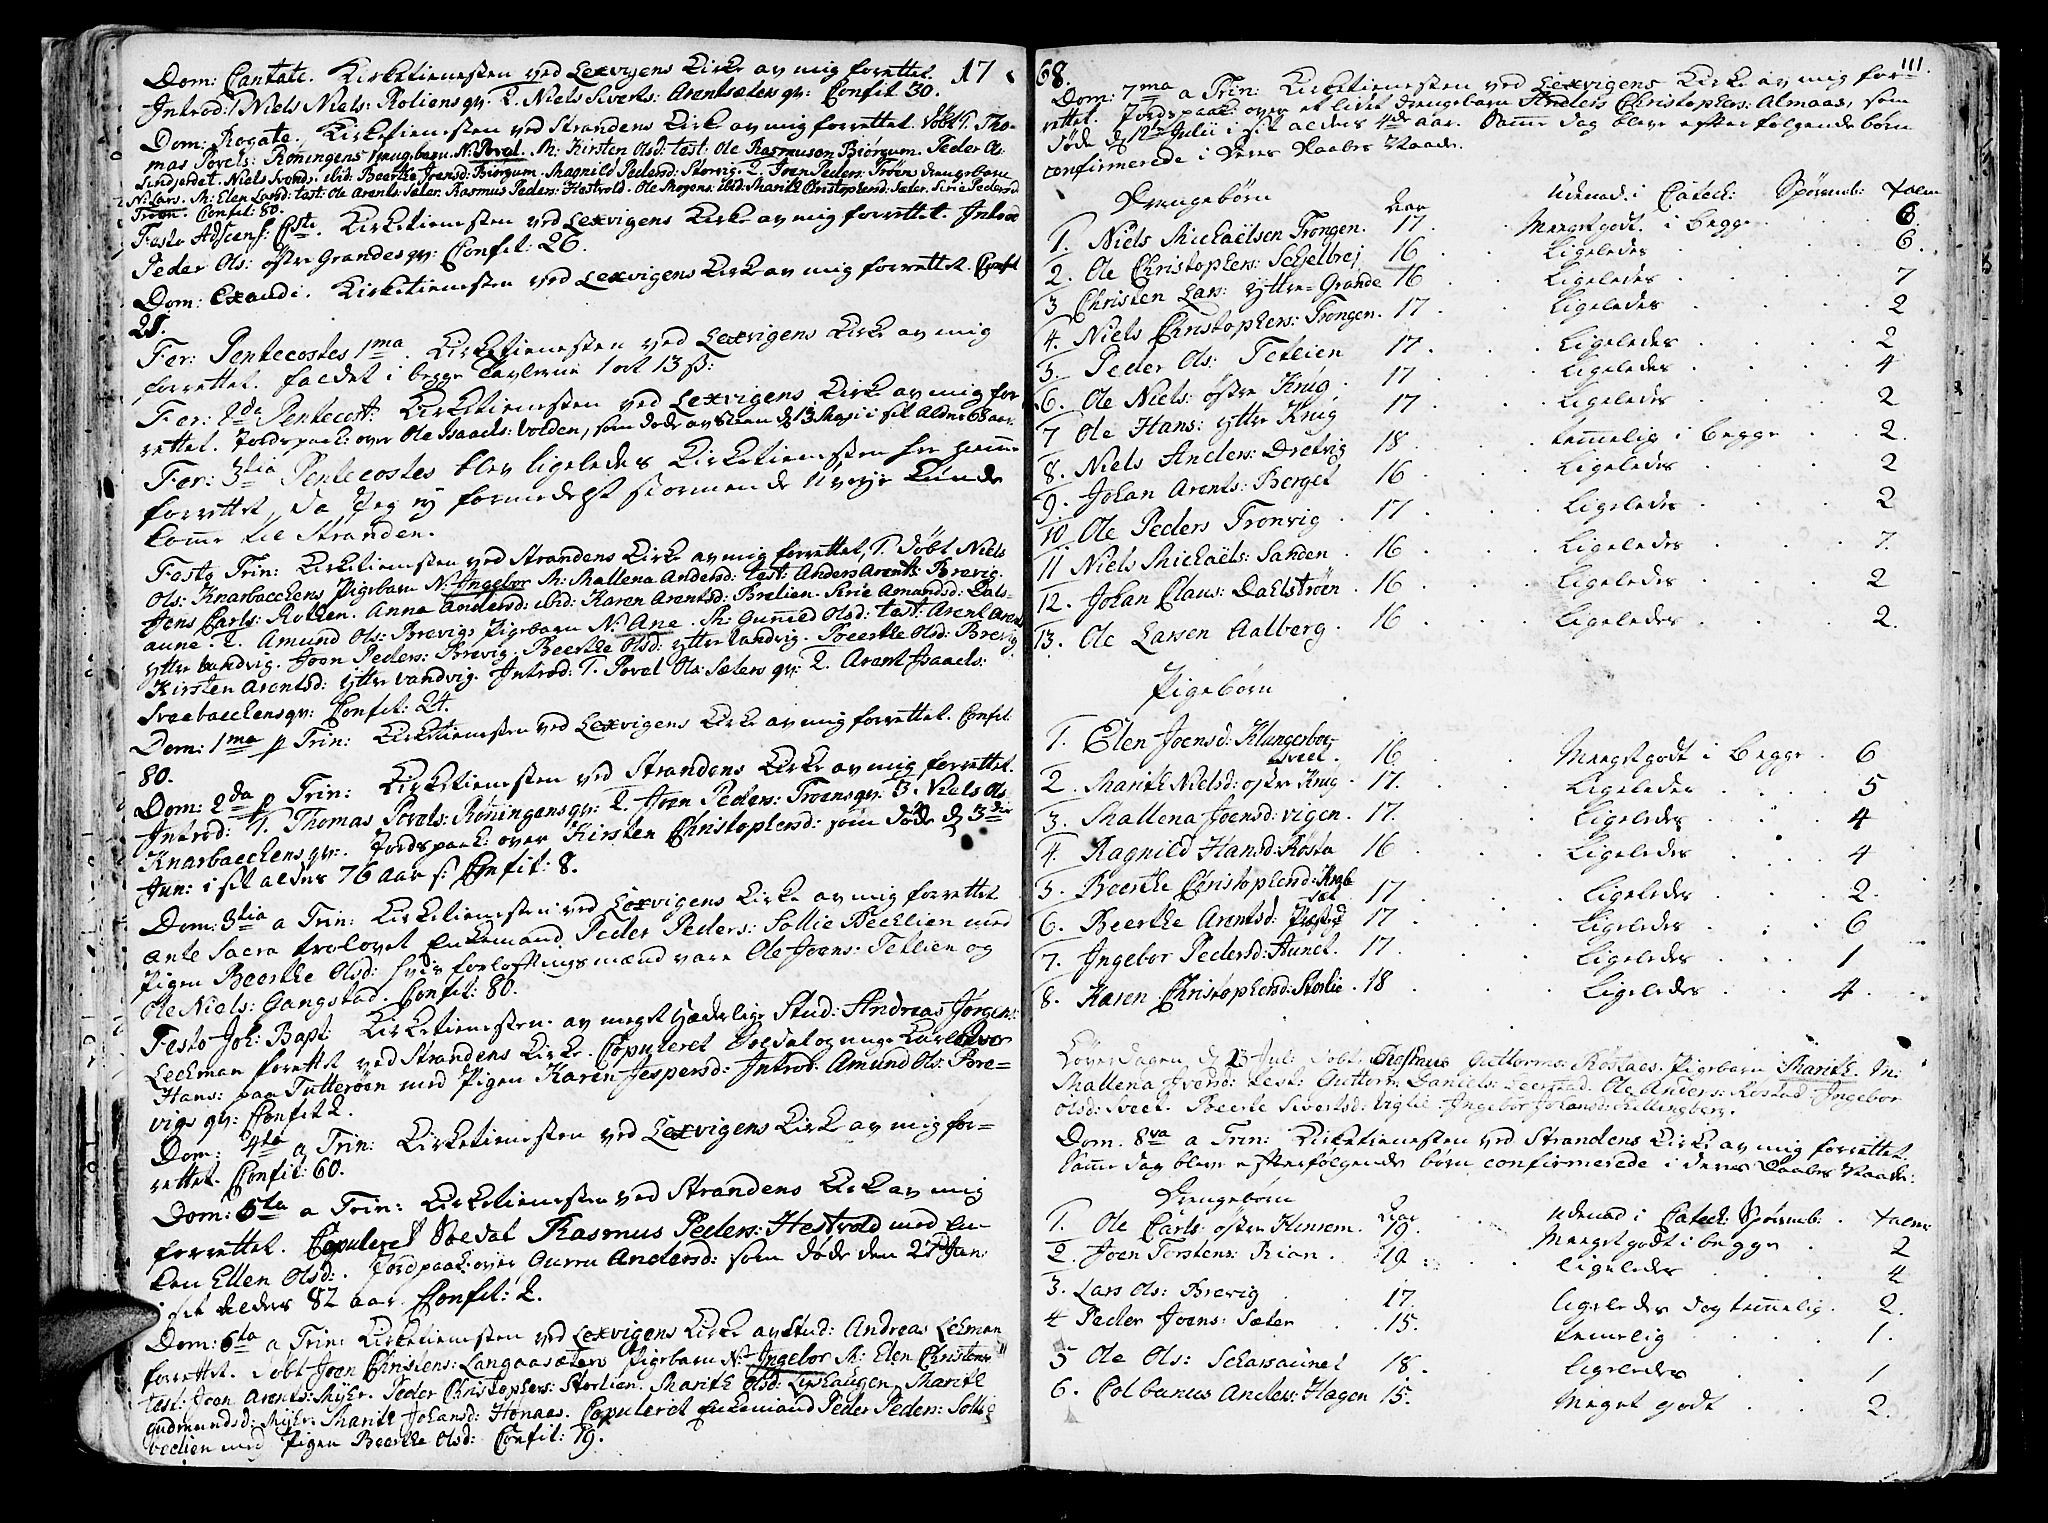 Dom: Cantate. Kirketienesten ved Lexvigens Kirke av mig forrettet. 17
Introd: 1 Niels Niels: Roliens qv: 2. Niels Siverts: Arentsæters qv: Confit 30.
Dom: Rogate. Kirketienesten ved Strandens Kirke av mig forrettet. Døbt 1. Tho-
mas Povels: Röningens Drengebarn N. Povel. M: Kirsten Olsd: test: Ole Rasmusen Biörgum. Peder Ols:
Niels Beerthe Joensd: Biörgum. Magnild Pedersd: Storvig. 2. Joen Peders: Tröens Drengebarn
N: Lars. M: Elen Larsd: test: Ole Arents: Sæter. Rasmus Peders: Hestvold. Ole Mogens: ibid: Marith Christophersd: Sæter. Sirie Pedersd:
Tröen. Confit: 80.
Festo Adscens: Chsti. Kirketienesten ved Lexvigens Kirke av mig forrettet. Introd
Peder Ols: östre Grandes qv: Confit: 26.
Dom: Exaudi. Kirketienesten ved Lexvigens Kirke av mig forrettet. Confit
21.
Fer: Pentecostes 1ma. Kirketienesten ved Lexvigens Kirke av mig
forrettet. faldet i begge Tavlerne 1 ort 13 s:
Fer: 2da Pentecost: Kirketienesten ved Lexvigens Kirke av mig for
rettet. Jordspaak: over Ole Isaachs: Volden, som döde av Steen d 13 Maji i sit Alders 68 aar.
Fer: 3tia Pentecostes blev ligeledes Kirketienesten her hiemme
forrettet, da Jeg ej formedelst stormende Uvejr kunde
komme til Stranden.
Festo Trin: Kirketienesten ved Strandens Kirke av mig forrettet, 1. döbt Niels
Ols: Knarbacchens Pigebarn N. Ingebor M: Mallena Andersd: test: Anders Arents: Brevig.
Jens Carls: Rotken. Anna Andersd: ibid: Karen Arentsd: Brelien. Sirie Amundsd: Dals-
aune. 2. Amund Ols: Brevigs Pigebarn N. Ane. M: Gunnild Olsd: test: Arent Arents
ytter Vandvig. Joen Peders: Brevig. Beerthe Olsd: ytter Vandvig. Beerthe Olsd: Brevig
Kirsten Arentsd: ytter Vandvig. Introd: 1. Povel Ols: Sæters qv: 2. Arent Isaachs:
Svebacchens qv: Confit: 24.
Dom: 1ma p Trin: Kirketienesten ved Lexvigens Kirke av mig forrettet. Confit:
80.
Dom: 2da p Trin: Kirketienesten ved Strandens Kirke av mig forrettet.
Introd: 1. Thomas Povels: Röningens qv: 2. Joen Peders: Troens qv: 3. Niels Ols
Knarbacchens qv: Jordspaak: over Kirsten Christophersd: som döde d 3die
Jun: i sit alders 76 aar s: Confit: 8.
Dom: 3tia a Trin: Kirketienesten ved Lexvigens Kirke av mig forrettet
ante Sacra trolovet Enkemand Peder Peders: Sollie Bechlien med
Pigen Beerthe Olsd: hvis forlovtningsmænd vare Ole Joens: Setlien og
Ole Niels: Gangstad. Confit: 80.
Festo Joh: Bapt: Kirketienesten av meget hæderlige Stud: Andreas Jörgen:
Leehman forrettet ved Strandens Kirke. Copuleret Soldat og unge Karl Halvor
Hans: paa Tutteröen med Pigen Karen Jespersd: Introd. Amund Ols: Bre=
vigs qv: Confit 2.
Dom: 4ta a Trin: Kirketienesten ved Lexvigens Kirke av mig for=
rettet. Confit: 60.
Dom: 5ta a Trin: Kirketienesten ved Strandens Kirke av mig
forrettet. Copuleret Soldat Rasmus Peders: Hestvold med En-
ken Ellen Olsd: Jordspaak: over Guren Andersd: som döde den 27 Jun:
i sit alders 82 aar. Confit: 2.
Dom: 6ta a Trin: Kirketienesten ved Lexvigens Kirke av Stud: Andreas Lehman
forrettet. Döbt Joen Christens: Langaasæters Pigebarn N: Ingebor M: Elen Christens
test: Joen Arents: Myhr. Peder Christophers: Storlien. Marith Olsd: Linhaugen Marith
Gudmundsd: Myhr. Marith Johansd: Honaes. Copuleret Enkemand Peder Peders: Sollie
bechlien med Pigen Beerthe Olsd: Confit: 79.
68. 111.
Dom: 7ma a Trin: Kirketienesten ved Lexvigens Kirke av mig for-
rettet. Jordspaak: over et lidet Drengebarn Anders Christophers: Almaas, som
döde d 12te Julii i sit alders 4de aar. Samme dag bleve efterfölgende börn
confirmerede i deres Daabes Naade.
Drengebörn Aar Udenad i Catech: Spörsmb: Psalm
1. Niels Michaëlsen Trongen. 17. Meget godt i begge 6.
2. Ole Christophers: Schjelbrej 16 Ligeledes 6.
3 Christen Lars: yttre=Grande 16 Ligeledes 7
4. Niels Christophers: Trongen. 17. Ligeledes 2
5. Peder Ols: Tetlien 17. Ligeledes 2
6. Ole Niels: östre Krüg. 17 Ligeledes 4
7 Ole Hans: yttre Krüg 17 Ligeledes 2
8. Niels Anders: Dretvig 18 temmelig i begge 2.
9. Johan Arents: Berget 16 Ligeledes 2
10 Ole Peders Tronvig 17. Ligeledes 2
11 Niels Michaëls: Sanden 16 Ligeledes 7.
12. Johan Claus: Dahlströen 16 Ligeledes 2
13. Ole Larsen Aalberg. 16 Ligeledes 2.
Pigebörn
1. Elen Joensd: Klungerbor-
tveet. 16 Meget godt i begge 6
2. Marith Nielsd: östre Krug 17. Ligeledes 5
3. Mallena Joensd: Vigen. 17. Ligeledes 4
4. Ragnild Hansd: Rösta 16 Ligeledes 4
5. Beerthe Christophersd: Krog-
sæt 17 Ligeledes 2.
6. Beerthe Arentsd: 17 Ligeledes 6
7. Ingebor Pedersd: Aunet. 17. Ligeledes 1
8. Karen Christophersd: Storlie. 18 Ligeledes 4.
Löverdagen d 23 Jul: döbt Guttorms: Röstaes. Pigebarn Marith. M:
Mallena Iversd: test: Guttorm Daniels: Leerstad. Ole Anders: Röstad. Ingebor
Olsd: Sveet. Beerte Sivertsd: Viglie. Ingebor Johansd: Killingberg.
Dom. 8va a Trin: Kirketienesten ved Strandens Kirke av mig forrettet.
Samme dag bleve efterfölgende börn confirmerede i deres Daabes Naade:
Drengebörn Aar Udenad i Catech: Spörsmb: Psalm
1. Ole Carls: östre Hinsem. 19. Meget godt i begge 2
2. Joen Torstens: Rian. 19 ligeledes 4
3. Lars Ols: Brevig 17. ligeledes dog temmelig. 2.
4 Peder Joens: Sæter 15. temmelig 1.
5 Ole Ols: Scharsaunet 18. ligeledes 1
6. Colbanus Anders: Hagen 15. Meget godt 2.